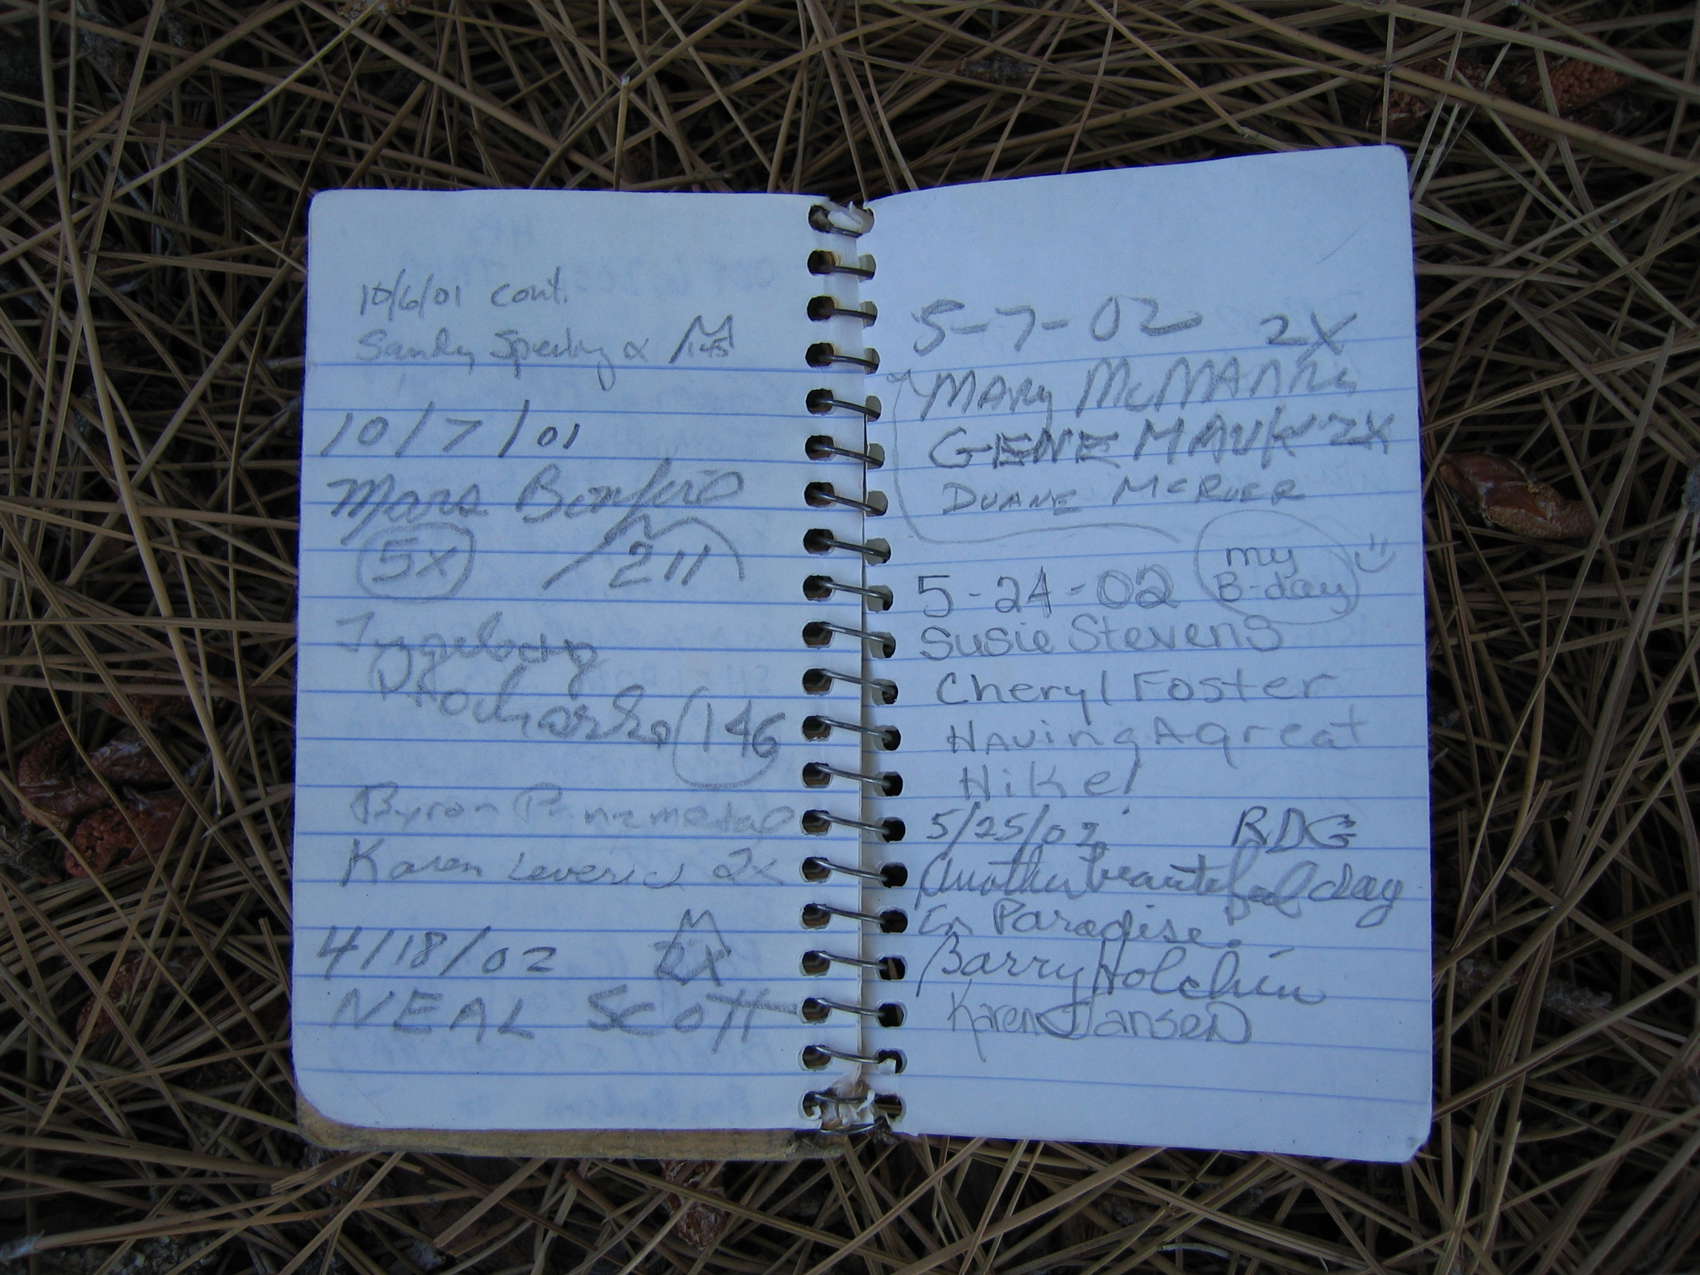 10/6/01 cont.
Sandy Sperling
10/7/01
Mars Bonfire
5x 211
Ingeborg
Prochazka 146
Byron
Karen Leverich 2x
4/18/02 2X
NEAL SCOTT
5-7-02 2X
MARY McMANNES
GENE MAUK 2X
DUANE McRUER
my
5-24-02 B-day
Susie Stevens
Cheryl Foster
HAVing A great
Hike!
5/25/02 RDG
Another beautiful day
In Paradise.
Barry Holchin
Karen Jansen